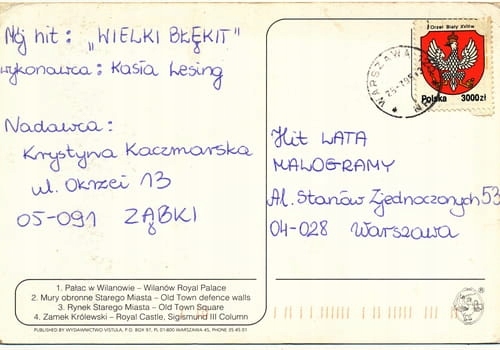 Mój hit: „WIELKI BŁĘKIT"
wykonawca: Kasia Lesing
Nadawca:
Krystyna Kaczmarska
ul. Okrzei 13
05-091 ZĄBKI
1. Pałac w Wilanowie – Wilanów Royal Palace
2. Mury obronne Starego Miasta – Old Town defence walls
3. Rynek Starego Miasta – Old Town Square
4. Zamek Królewski – Royal Castle, Sigismund III Column
PUBLISHED BY WYDAWNICTWO VISTULA, P.O. BOX 97, PL 01-800 WARSZAWA 45, PHONE 35 45 01
Orzeł Biały XVIw
Polska 3000zł
WARSZAWA
Hit LATA
MALOGRAMY
Al. Stanów Zjednoczonych 53
04-028 Warszawa